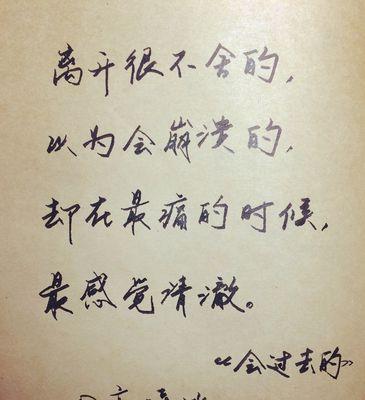 离开很不舍的，
以为会崩溃的，
却在最痛的时候，
最感觉清澈。
《会过去的》